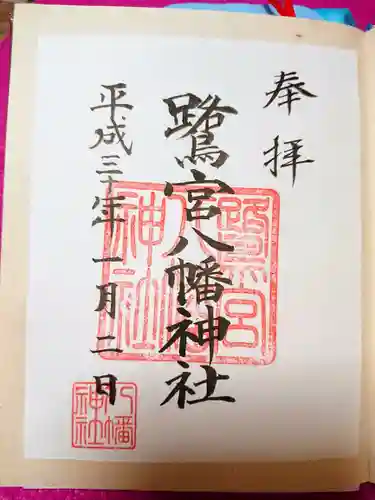 奉拝
鷺宮八幡神社
平成三十年一月二日
鷺宮八幡神社
八幡神社